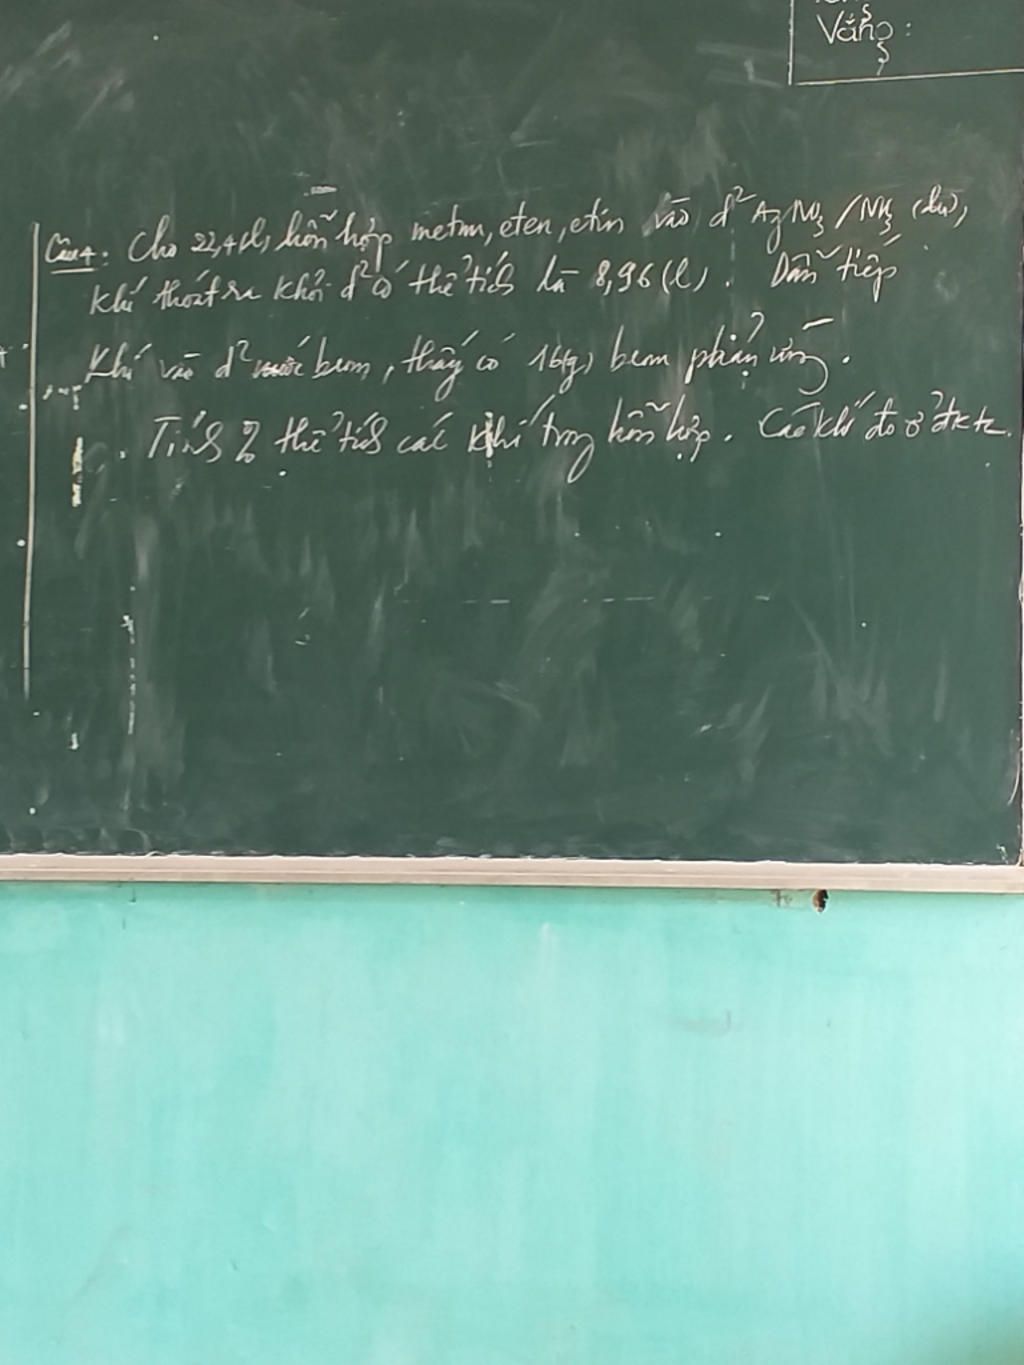 Vắng :
Câu 4: Cho 22,4 (l) hỗn hợp metan, eten, etin vào d² AgNO₃/NH₃ (dư),
khí thoát ra khỏi d² có thể tích là 8,96 (l). Dẫn tiếp
khí vào d² nước brom, thấy có 16(g) brom phản ứng.
Tính % thể tích các khí trong hỗn hợp. Các khí đo ở đktc.